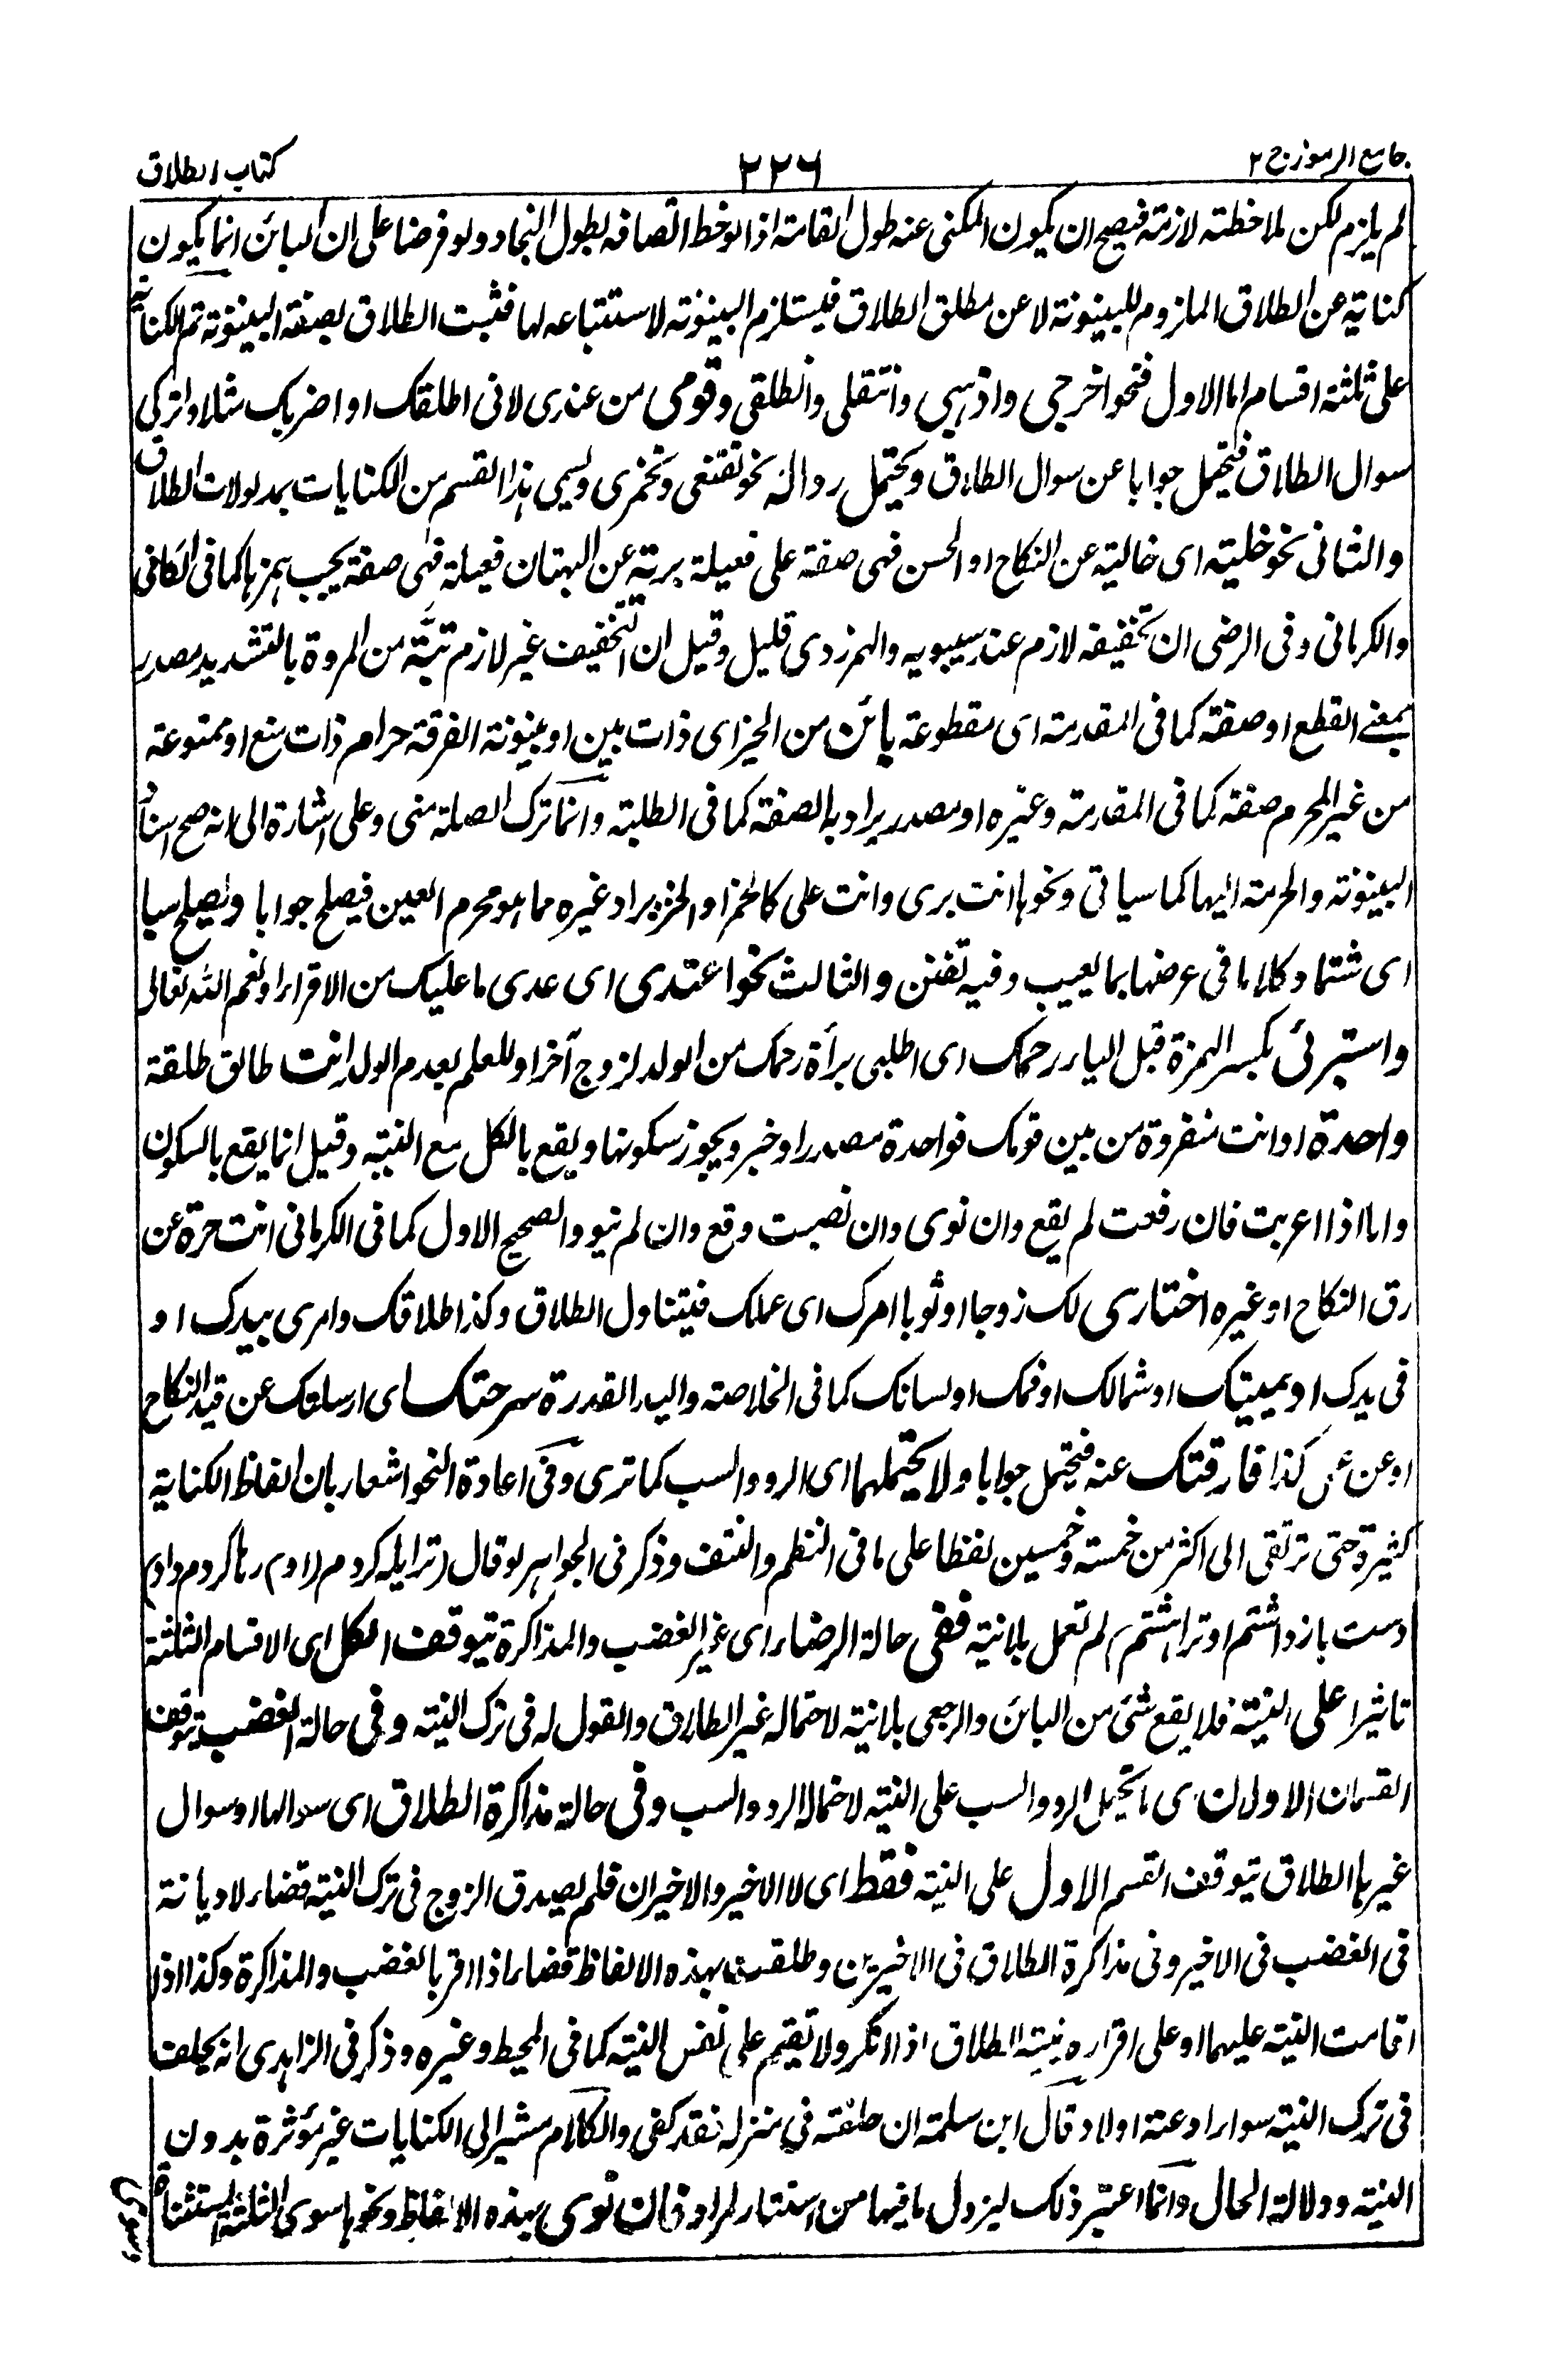 جامع الرموز ج ۲
۲۲۶
كتاب الطلاق
لم يلزم لكن لملاحظة لازمة فيصح ان يكون المكنى عنه طول القامة اذا لوحظ اتصافه بطول النجاد ولو فرضا على ان البائن انما يكون
كناية عن الطلاق الملزوم للبينونة لا عن مطلق الطلاق فيستلزم البينونة لاستتباعه لها فثبت الطلاق بصفة البينونة ثم الكناية
على ثلثة اقسام اما الاول فنحو اخرجى واذهبى وانتقلى وانطلقى وقومى من عندى لانى اطلقك او اضربك مثلا واتركى
سوال الطلاق فيحتمل جوابا عن سوال الطلاق ويحتمل ردا له نحو تقنعى وتخمرى ويسمى هذا القسم من الكنايات بمدلولات الطلاق
والثانى نحو خلية اى خالية عن النكاح او الحسن فهى صفة على فعيلة برية عن البهتان فعيلة فهى صفة يجب همزها كما فى الكافى
والكرمانى وفى الرضى ان تخفيفه لازم عند سيبويه والهمز ردى قليل وقيل ان التخفيف غير لازم بتة من المروة بالتشديد مصدر
بمعنى القطع او صفة كما فى المقدمة اى مقطوعة بائن من الحيز اى ذات بين او بينونة الفرقة حرام ذات منع او ممنوعة
من غير المحرم صفة كما فى المقدمة وغيره او مصدر يراد به الصفة كما فى الطلبة وانما ترك الصلة منى وعلى اشارة الى انه صح اسناد
البينونة والحرمة اليها كما سياتى ونحوها انت برى وانت على كالخمر او الخنزير او غيره مما هو محرم العين فيصلح جوابا ويصلح سبا
اى شتما وكلاما فى عرضها بما يعيب وفيه تفنن والثالث نحو اعتدى اى عدى ما عليك من الاقراء او نعم الله تعالى
واستبرئى بكسر الهمزة قبل الياء رحمك اى اطلبى براءة رحمك من الولد لزوج آخر او للعلم بعدم الولد انت طالق طلقة
واحدة او انت منفردة من بين قومك فواحدة مصدر او خبر ويجوز سكونها ويقع بالكل مع النية وقيل انما يقع بالسكون
واما اذا اعربت فان رفعت لم يقع وان نوى وان نصبت وقع وان لم ينو والصحيح الاول كما فى الكرمانى انت حرة عن
رق النكاح او غيره اختارى لك زوجا او ثوبا امرك اى عملك فيتناول الطلاق وكذا طلاقك وامرى بيدك او
فى يدك او يمينك او شمالك او فمك او لسانك كما فى الخلاصة واليد القدرة سرحتك اى ارسلتك عن قيد النكاح
او عن كذا فارقتك عنه فيحتمل جوابا ولا يحتملهما اى الرد والسب كما ترى وفى اعادة النحو اشعار بان الفاظ الكناية
كثيرة حتى ترتقى الى اكثر من خمسة وخمسين لفظا على ما فى النظم والنتف وذكر فى الجواهر لو قال (ترا يله كردم رها كردم
دست باز داشتم او ترا هشتم) لم تعمل بلا نية ففى حالة الرضاء اى غير الغضب والمذاكرة يتوقف الكل اى الاقسام الثلثة
تاثيرا على النية فلا يقع شئ من البائن والرجعى بلا نية لاحتماله غير الطلاق والقول له فى ترك النية وفى حالة الغضب يتوقف
القسمان الاولان اى ما يحتمل الرد والسب على النية لاحتمال الرد والسب وفى حالة مذاكرة الطلاق اى سوالها او سوال
غيرها الطلاق يتوقف القسم الاول على النية فقط اى لا الاخير والاخيران فلم يصدق الزوج فى ترك النية قضاء لا ديانة
فى الغضب فى الاخير وفى مذاكرة الطلاق فى الاخيرين وطلقت بهذه الالفاظ قضاء اذا اقر بالغضب والمذاكرة وكذا اذا
اقامت البينة عليهما او على اقراره بنية الطلاق اذا انكر ولا تقيم على نفس النية كما فى المحيط وغيره وذكر فى الزاهدى انه يحلف
فى ترك النية سواء ادعته او لا وقال ابن سلمة ان حلفته فى منزله فقد كفى والكلام مشير الى الكنايات غير مؤثرة بدون
النية ودلالة الحال وانما اعتبر ذلك ليزول ما فيها من استتار المراد فان نوى بهذه الالفاظ ونحوها سوى الثلثة المستثناة